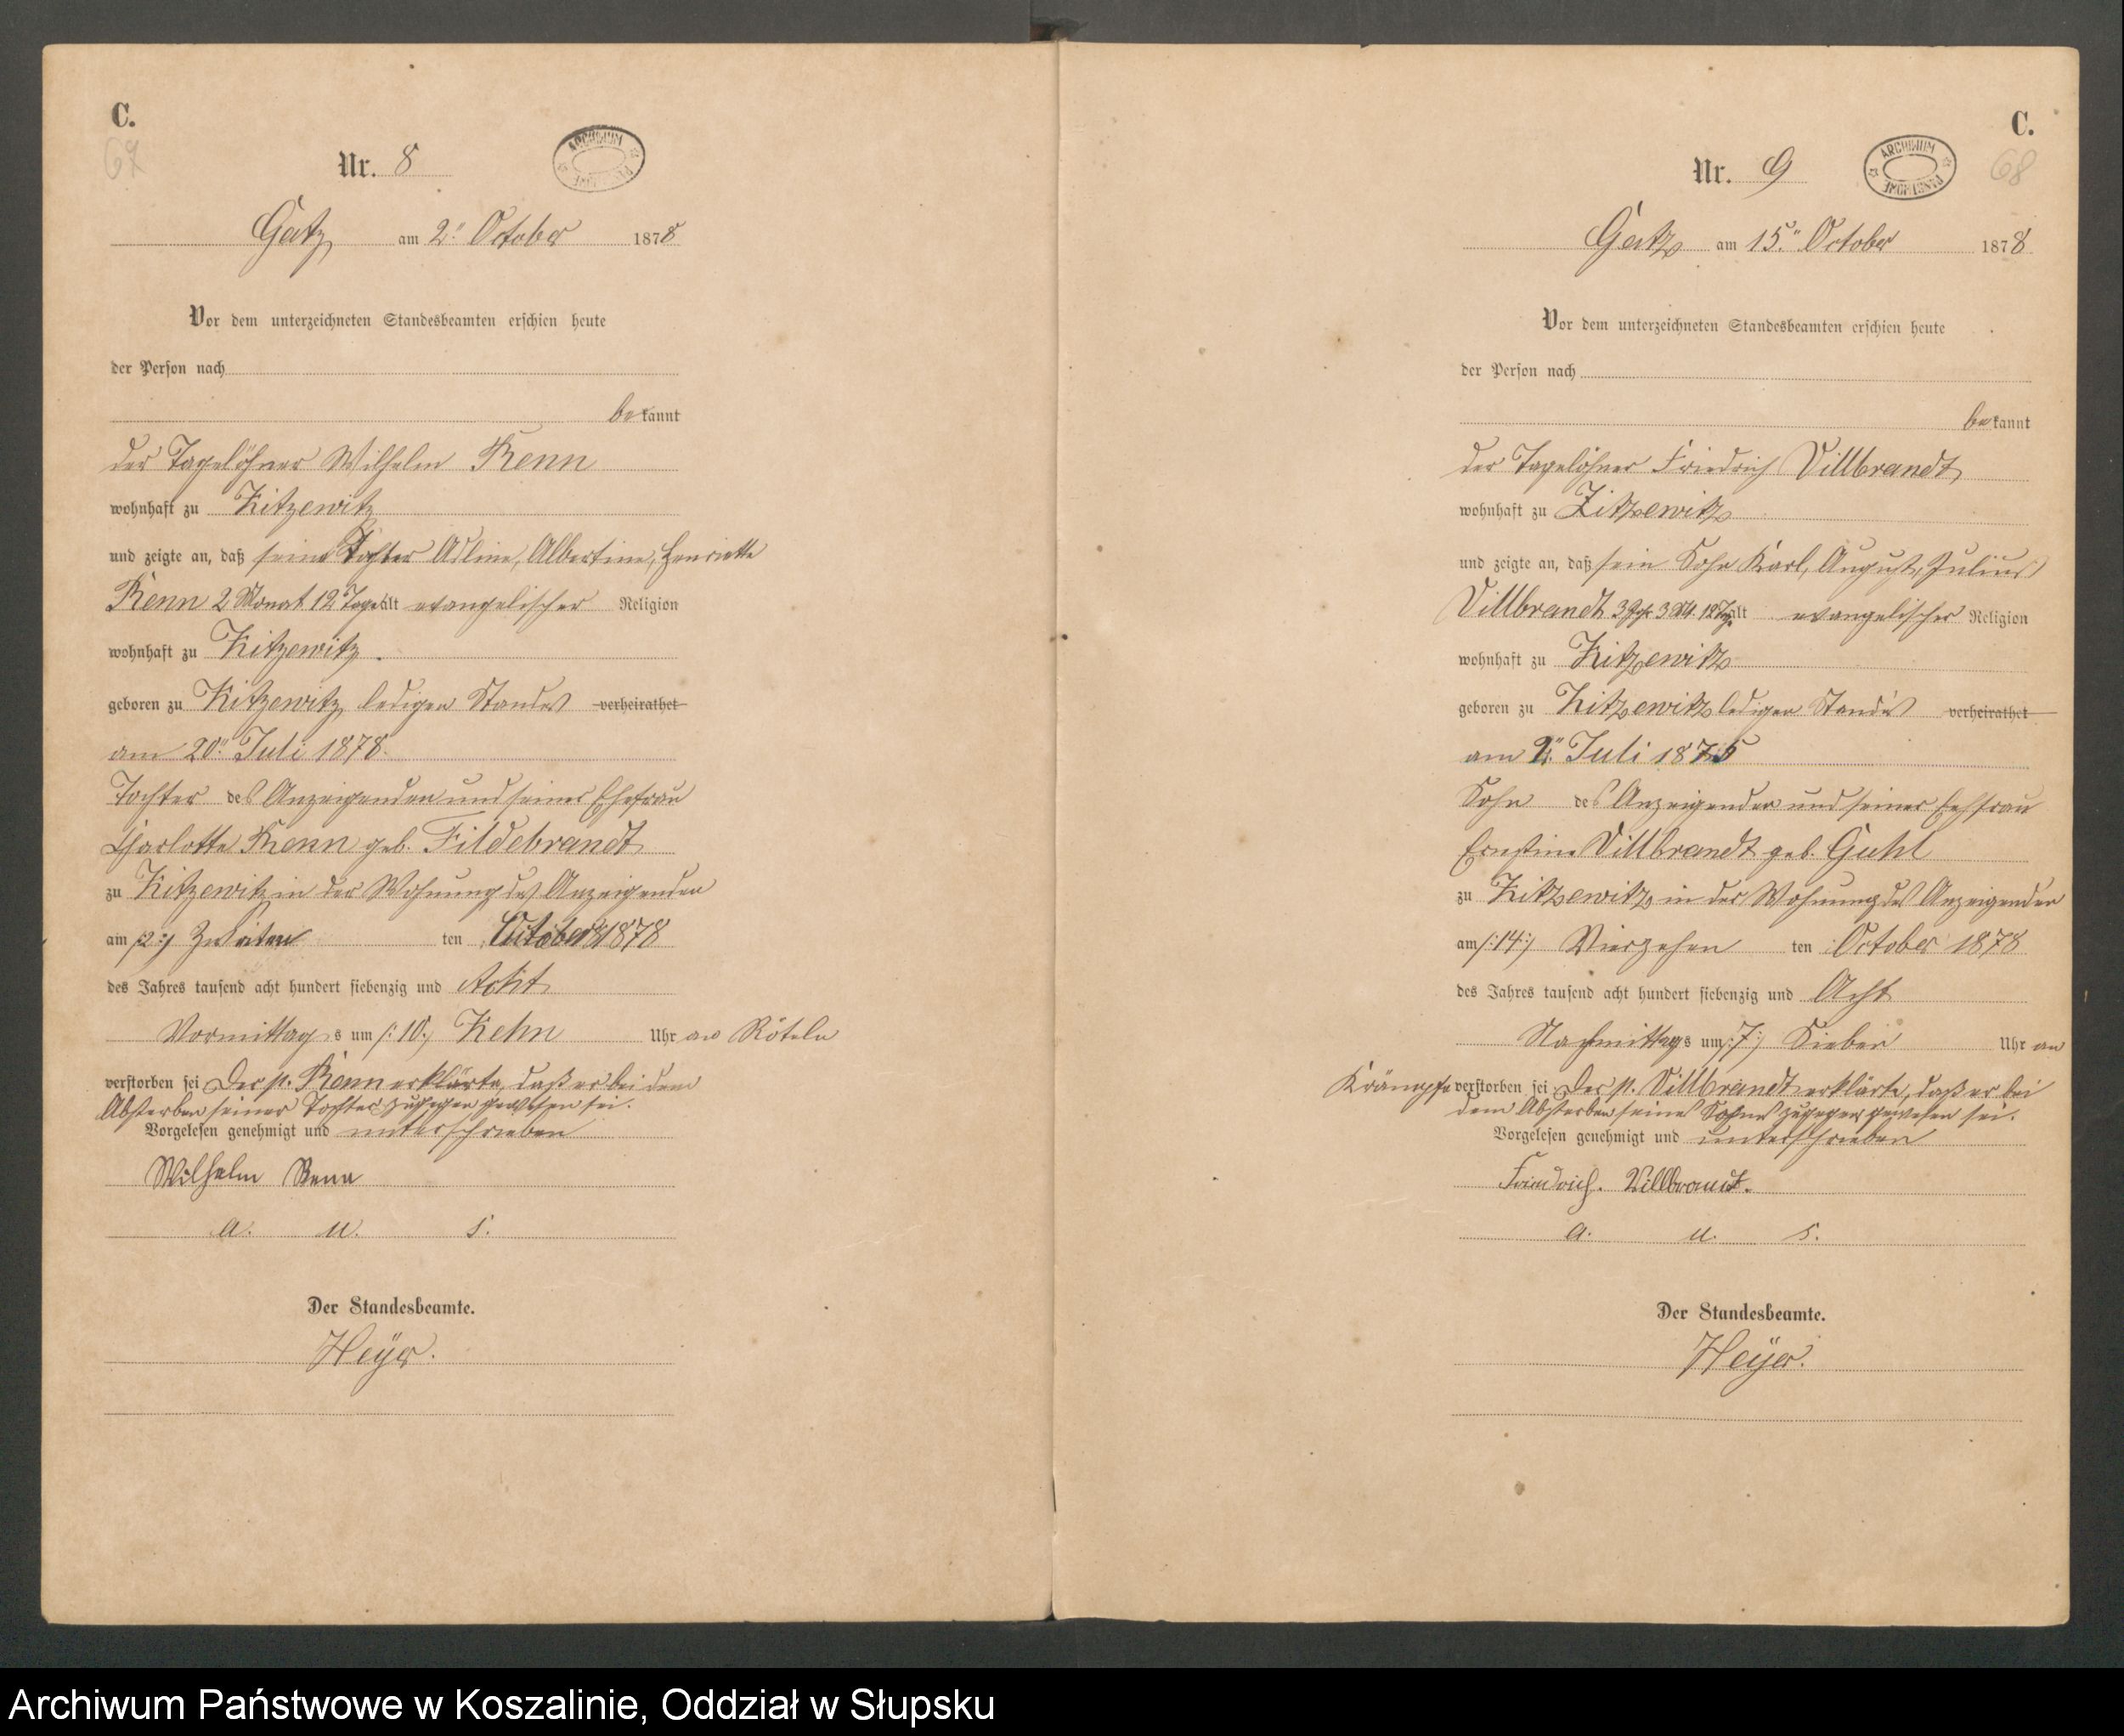 C.
67
Nr. 8
ARCHIWUM PAŃSTWOWE
Gatz am 2ⁿ October 1878
Vor dem unterzeichneten Standesbeamten erschien heute
der Person nach
bekannt
der Tagelöhner Wilhelm Renn
wohnhaft zu Zitzewitz
und zeigte an, daß seine Tochter Adline, Albertine, Henriette
Renn 2 Monat 12 Tage alt evangelischer Religion
wohnhaft zu Zitzewitz.
geboren zu Zitzewitz, ledigen Standes verheirathet
am 20ⁿ Juli 1878.
Tochter des Anzeigenden und seiner Ehefrau
Charlotte Renn geb. Fildebrandt
zu Zitzewitz in der Wohnung des Anzeigenden
am /:2:/ Zweiten ten October 1878
des Jahres tausend acht hundert siebenzig und Acht
Vormittags um /:10:/ Zehn Uhr an Röteln
verstorben sei Der p. Renn erklärte, daß er bei dem
Absterben seiner Tochter zugegen gewesen sei.
Vorgelesen genehmigt und unterschrieben
Wilhelm Renn
a. u. s.
Der Standesbeamte.
Heÿer.
C.
68
Nr. 9
ARCHIWUM PAŃSTWOWE
Gatz am 15ⁿ October 1878
Vor dem unterzeichneten Standesbeamten erschien heute
der Person nach
bekannt
der Tagelöhner Friedrich Villbrandt
wohnhaft zu Zitzewitz
und zeigte an, daß sein Sohn Karl, August, Julius
Villbrandt 3 Jhr. 3 Mt. 12 Tg. alt evangelischer Religion
wohnhaft zu Zitzewitz
geboren zu Zitzewitz ledigen Standes verheirathet
am 2ⁿ Juli 1875
Sohn des Anzeigenden und seiner Eehfrau
Ernstine Villbrandt geb. Guhl
zu Zitzewitz in der Wohnung des Anzeigenden
am /:14:/ Vierzehen ten October 1878
des Jahres tausend acht hundert siebenzig und Acht
Nachmittags um /:7:/ Sieben Uhr an
Krämpfe verstorben sei. Der p. Villbrandt erklärte, daß er bei
dem Absterben seines Sohnes zugegen gewesen sei.
Vorgelesen genehmigt und unterschrieben
Friedrich. Villbrandt.
a. u. s.
Der Standesbeamte.
Heÿer.
Archiwum Państwowe w Koszalinie, Oddział w Słupsku